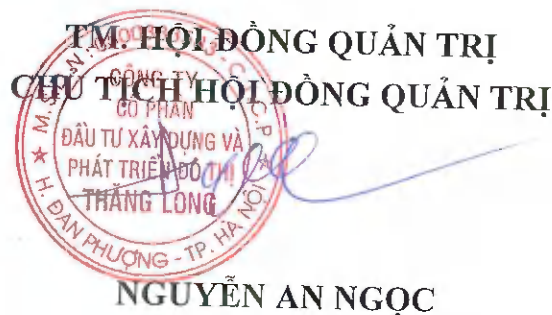 TM. HỘI ĐỒNG QUẢN TRỊ
CHỦ TỊCH HỘI ĐỒNG QUẢN TRỊ
CÔNG TY
CỔ PHẦN
ĐẦU TƯ XÂY DỰNG VÀ
PHÁT TRIỂN ĐÔ THỊ
THĂNG LONG
H. ĐAN PHƯỢNG - TP. HÀ NỘI
NGUYỄN AN NGỌC